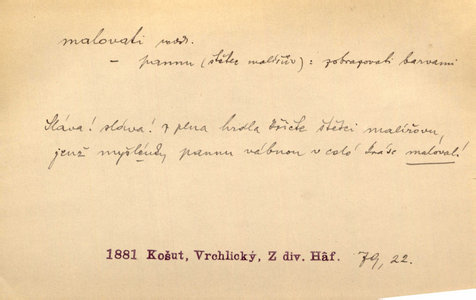 malovati ned.
— pannu (štětec malířův): zobrazovati barvami
Sláva! sláva! z plna hrdla křičte štětci malířovu,
jenž myšlénky pannu vábnou v celé kráse maloval!
1881 Košut, Vrchlický, Z div. Háf. 79, 22.